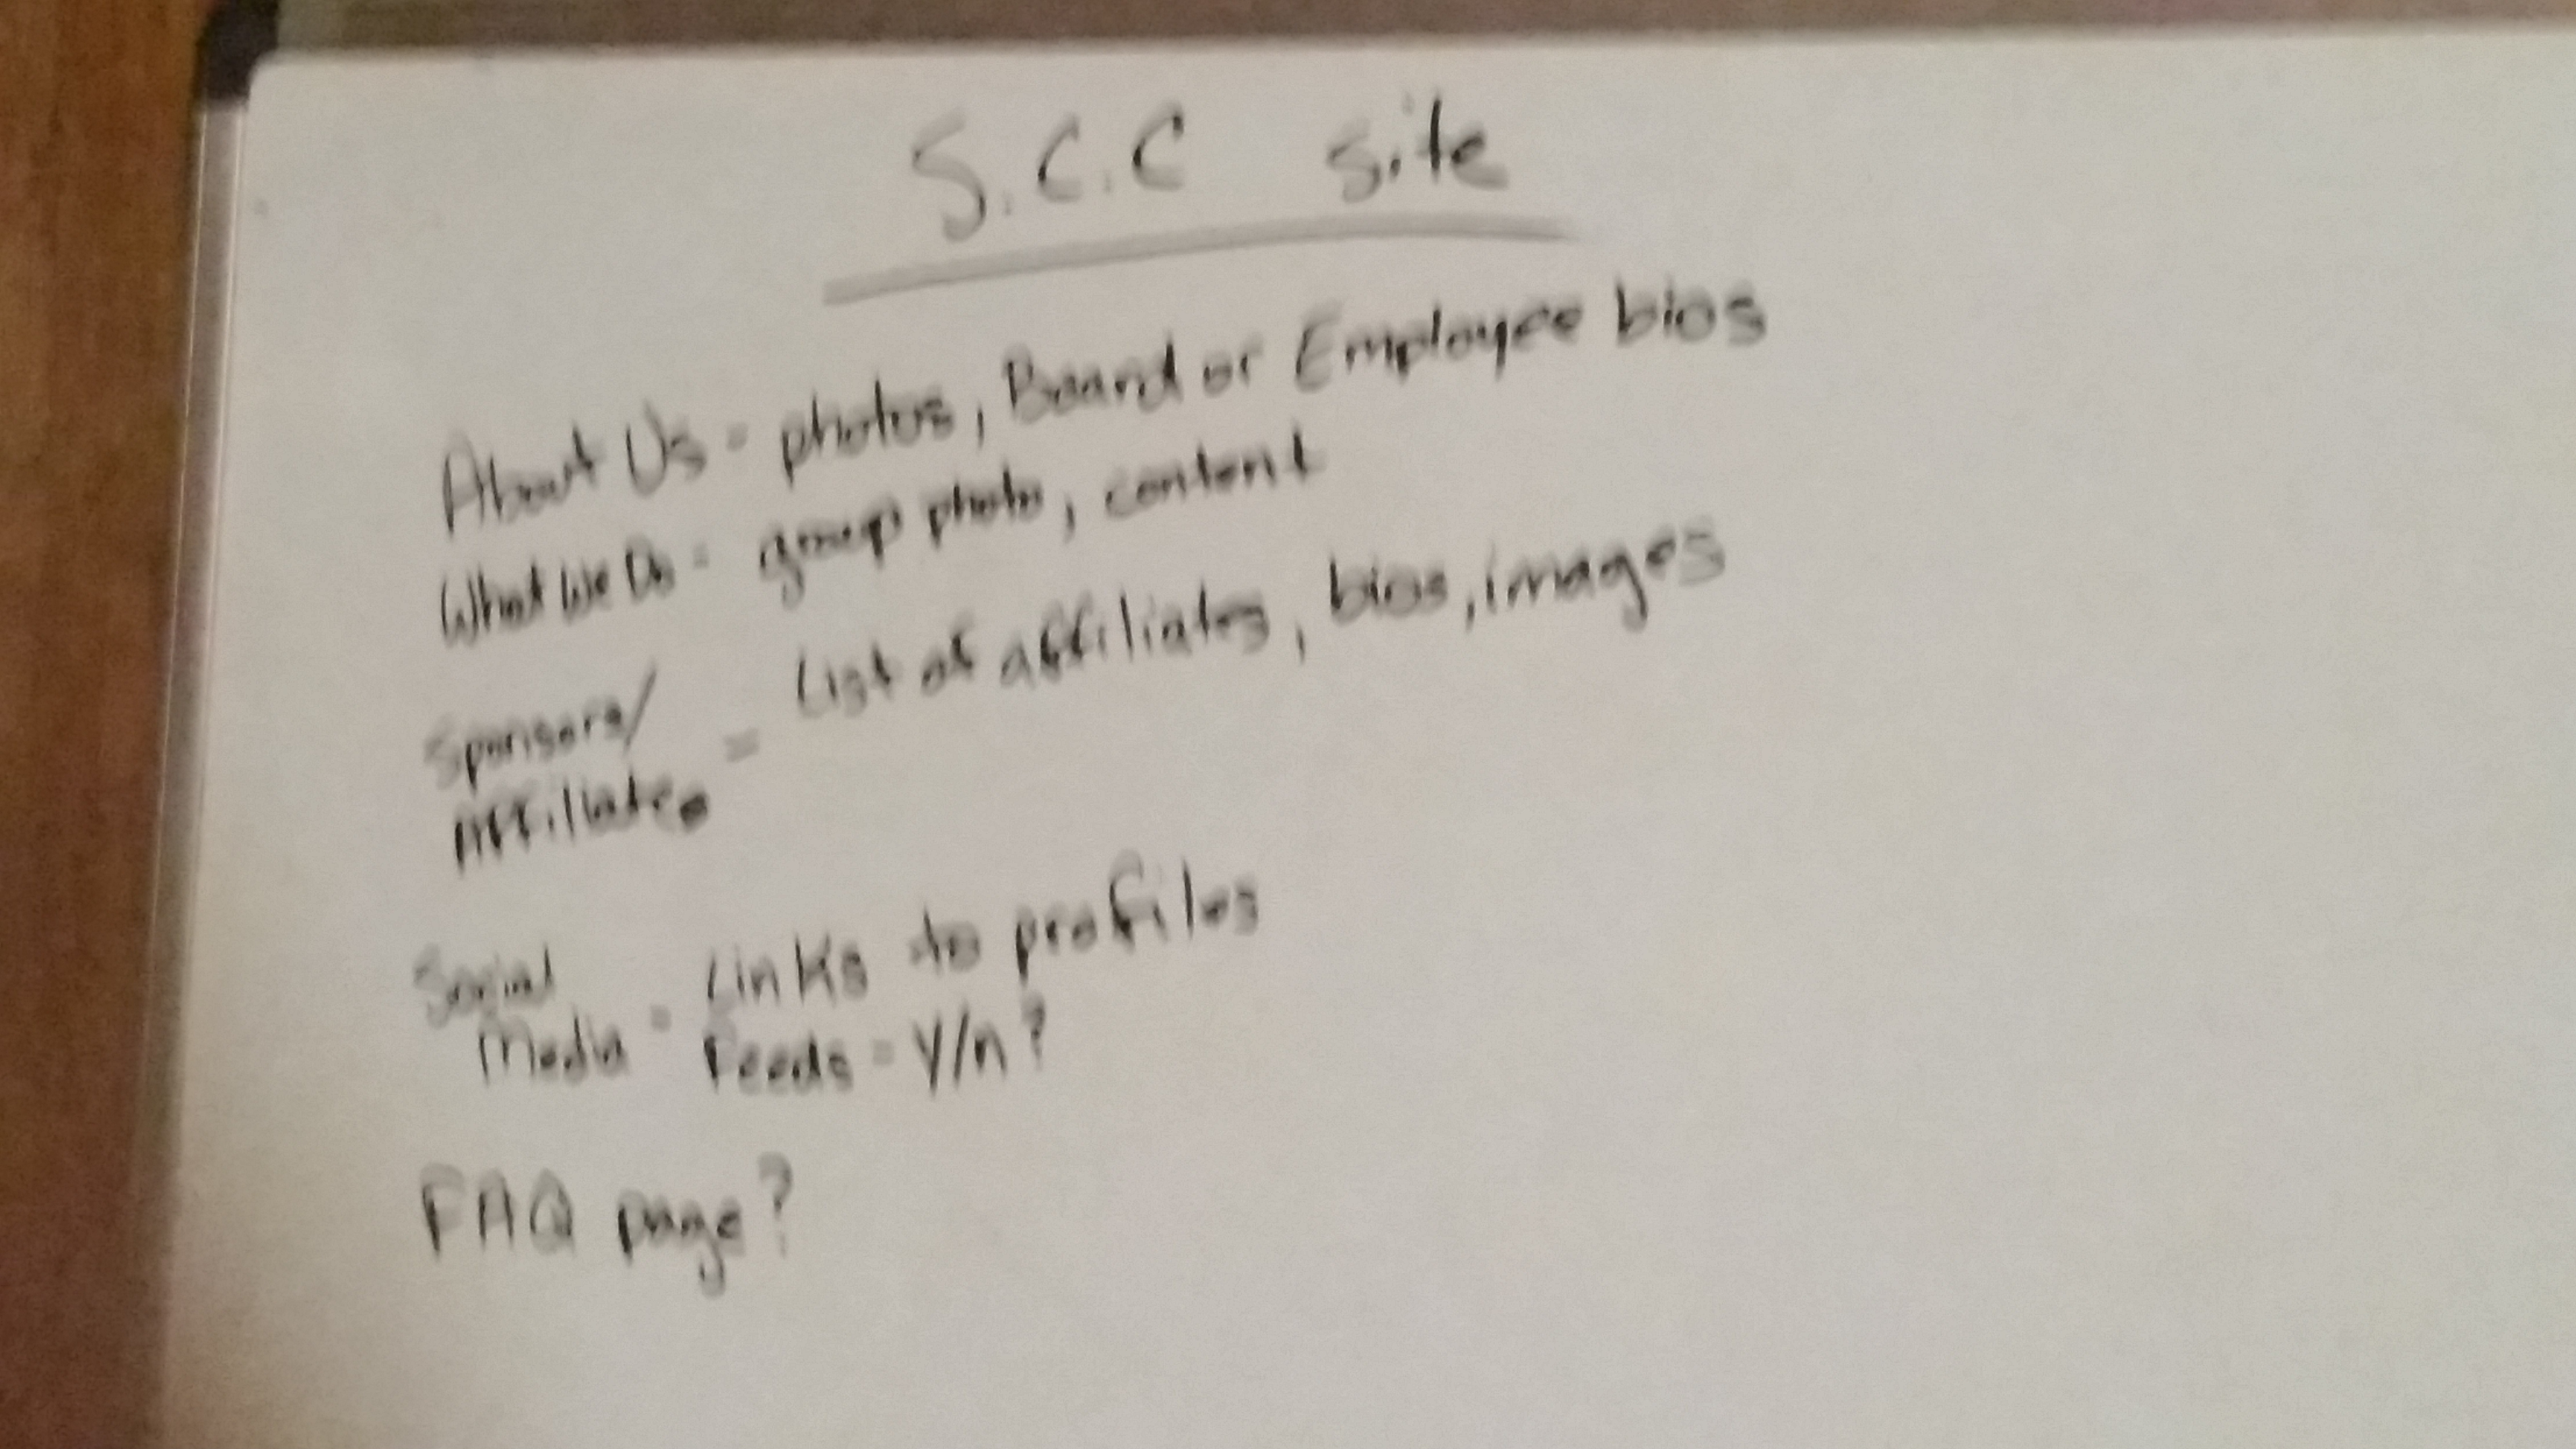 S.C.C site
About Us = photos, Board or Employee bios
What We Do = group photo, content
Sponsors/
Affiliates = List of affiliates, bios, images
Social
Media = Links to profiles
Feeds = Y/n?
FAQ page?